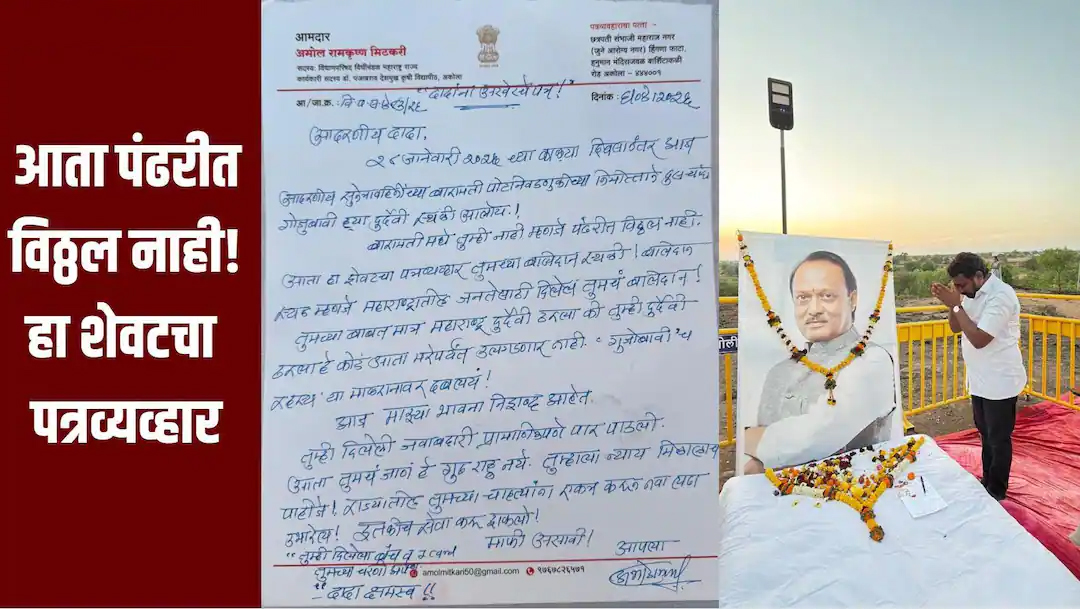 आता पंढरीत
विठ्ठल नाही!
हा शेवटचा
पत्रव्यव्हार
आमदार
अमोल रामकृष्ण मिटकरी
सदस्य: विधानपरिषद विधीमंडळ महाराष्ट्र राज्य
कार्यकारी सदस्य डॉ. पंजाबराव देशमुख कृषी विद्यापीठ, अकोला
पत्रव्यवहाराचा पत्ता -
छत्रपती संभाजी महाराज नगर
(जुने आरोग्य नगर) हिंगणा फाटा,
हनुमान मंदिराजवळ कौलखेड
रोड अकोला - ४४४००१
"दादांना अखेरचे पत्र!"
आ./जा.क्र.
दिनांक :
आदरणीय दादा,
२८ जानेवारी २०२६ च्या काळ्या दिवसानंतर आज
आदरणीय सुनेत्रावहिनींच्या बारामती पोटनिवडणुकीच्या निमित्ताने
गोजुबावी ह्या दुर्दैवी स्थळी आलोय.!
बारामती मध्ये तुम्ही नाही म्हणजे पंढरीत विठ्ठल नाही.
आता हा शेवटचा पत्रव्यव्हार तुमच्या बलिदान स्थळी! बलिदान
स्थळ म्हणजे महाराष्ट्रातील जनतेसाठी दिलेलं तुमचं बलिदान!
तुमच्या बाबत मात्र महाराष्ट्र दुर्दैवी ठरला की तुम्ही दुर्दैवी
ठरला हे कोडं आता मरेपर्यंत उलगडणार नाही. "गुजोबावी" च
रहस्य या माळरानावर दबलयं!
आज माझ्या भावना निःशब्द आहेत.
तुम्ही दिलेली जबाबदारी प्रामाणिकपणे पार पाडली.
आता तुमचं जाणं हे गुढ राहू नये. तुम्हाला न्याय मिळालाच
पाहीजे! राज्यातील तुमच्या चाहत्यांना एकत्र करून नवा लढा
उभारेल! इतकीच सेवा करू शकलो!
माफी असावी!
"तुम्ही दिलेला
तुमच्या चरणी
- दादा क्षमस्व !!
आपला
amolmitkari50@gmail.com
९७६७८२६५७१